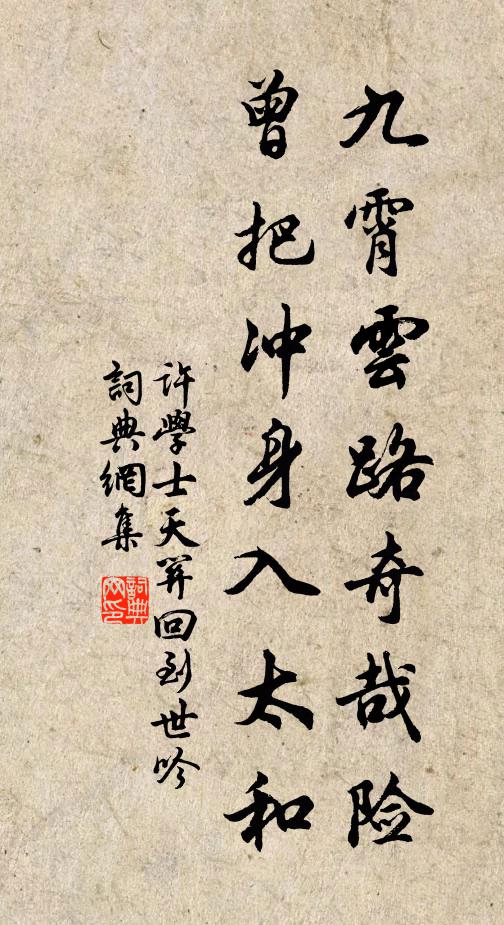 九霄雲路奇哉险
曾把冲身入太和
许學士天筭回到世吟
詞典網集
詞典
网印